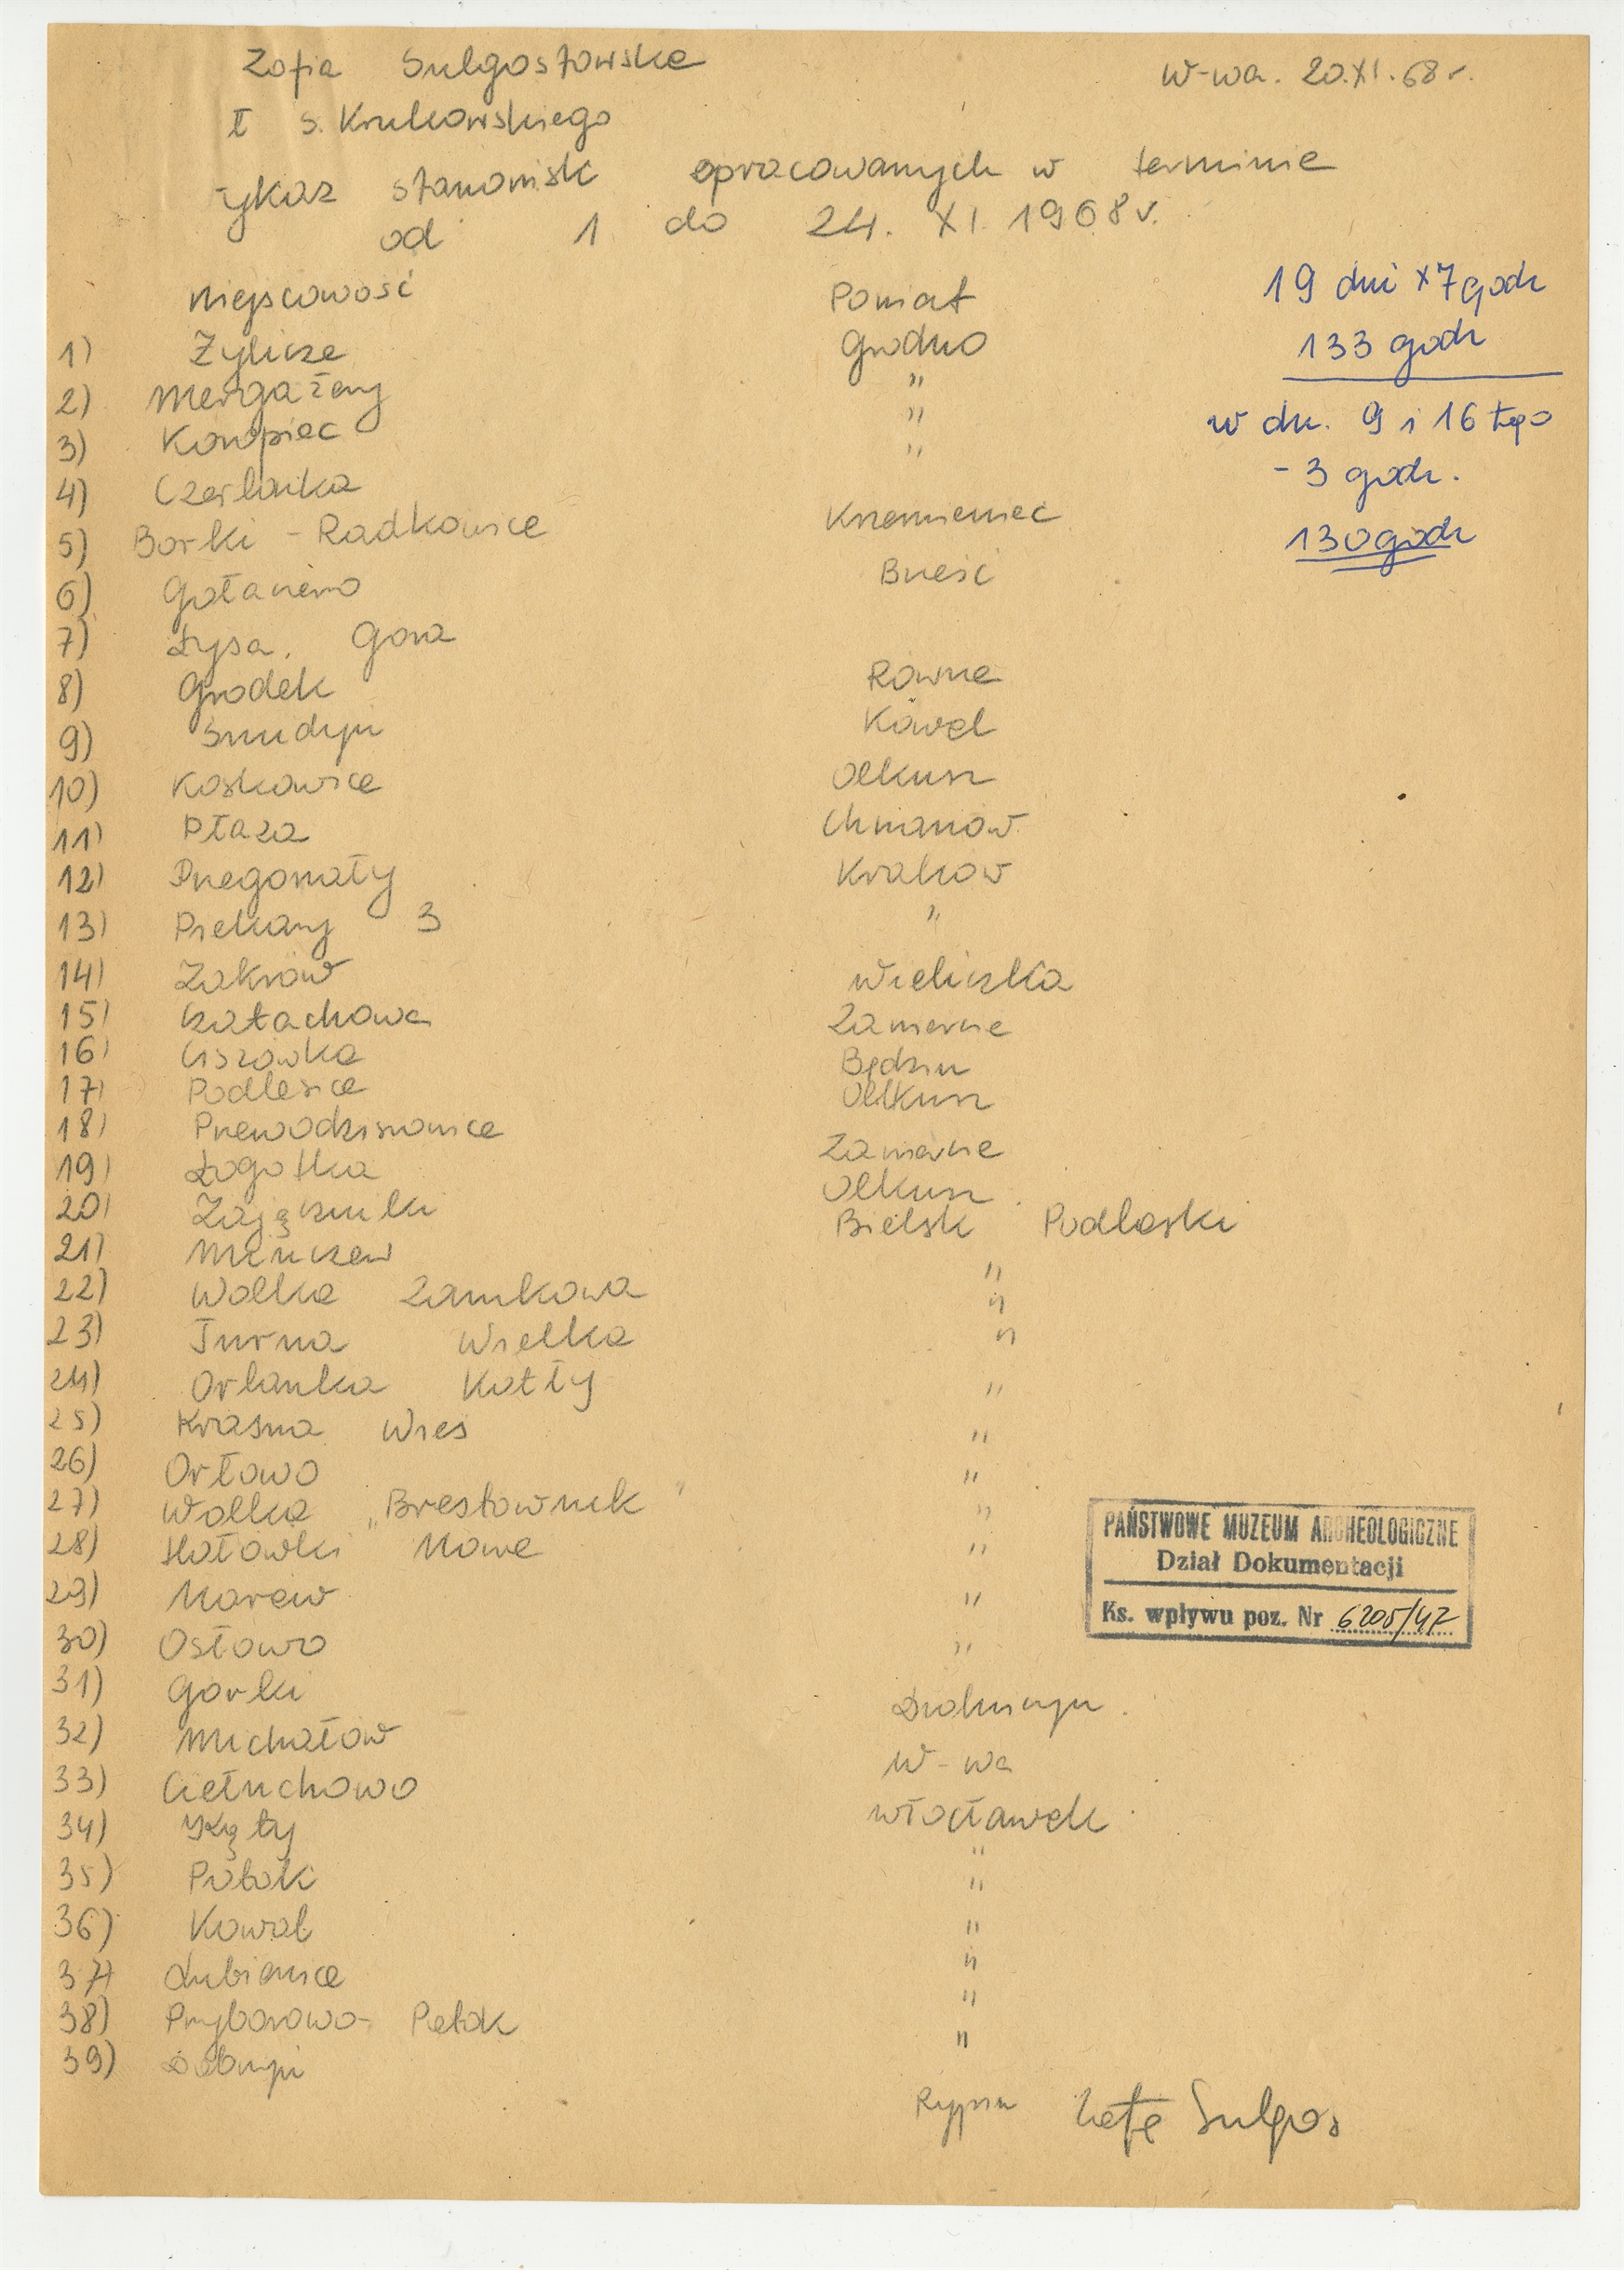 Zofia Sulgostowska
W-wa. 20.XI.68 r.
I S. Krukowskiego
ykaz stanowisk opracowanych w terminie
od 1 do 24. XI. 1968 r.
Miejscowość Powiat
19 dni x 7 godz
1) Żylicze Grodno
133 godz
2) Mergażery "
3) Konopiec "
w dn. 9 i 16 tego
4) Czerlonka "
- 3 godz.
5) Borki - Radkowice Krzemieniec
130 godz
6) Gotaniewo Brześć
7) Łysa. Góra
8) Grodek Równe
9) Smudyń Kowel
10) Koskowice Olkusz
11) Płaza Chrzanów
12) Przegorzały Kraków
13) Piekary 3 "
14) Zakrzów Wieliczka
15) Czatachowa Zawiercie
16) Cisówka Będzin
17) Podlesice Olkusz
18) Przewodziszowice
19) Łogotka Zawiercie
20) Zajączniki Olkusz
Bielsk Podlaski
21) Mińczew
22) Wolka Zamkowa "
23) Turna Wielka "
24) Orlanka Kotły "
25) Krasna Wies "
26) Orłowo "
27) Wolka „Brestownik" "
28) Hołowki Nowe "
PAŃSTWOWE MUZEUM ARCHEOLOGICZNE
Dział Dokumentacji
Ks. wpływu poz. Nr 6205/47
29) Narew "
30) Osłowo "
31) Gorki Drohiczyn
32) Michałów W-wa
33) Ciełuchowo
34) Kąty Włocławek
35) Potok "
36) Kowal "
37) Lubienice "
38) Przyborowo - Potok "
39) Dobrzyń "
Rypin Zofia Sulgos